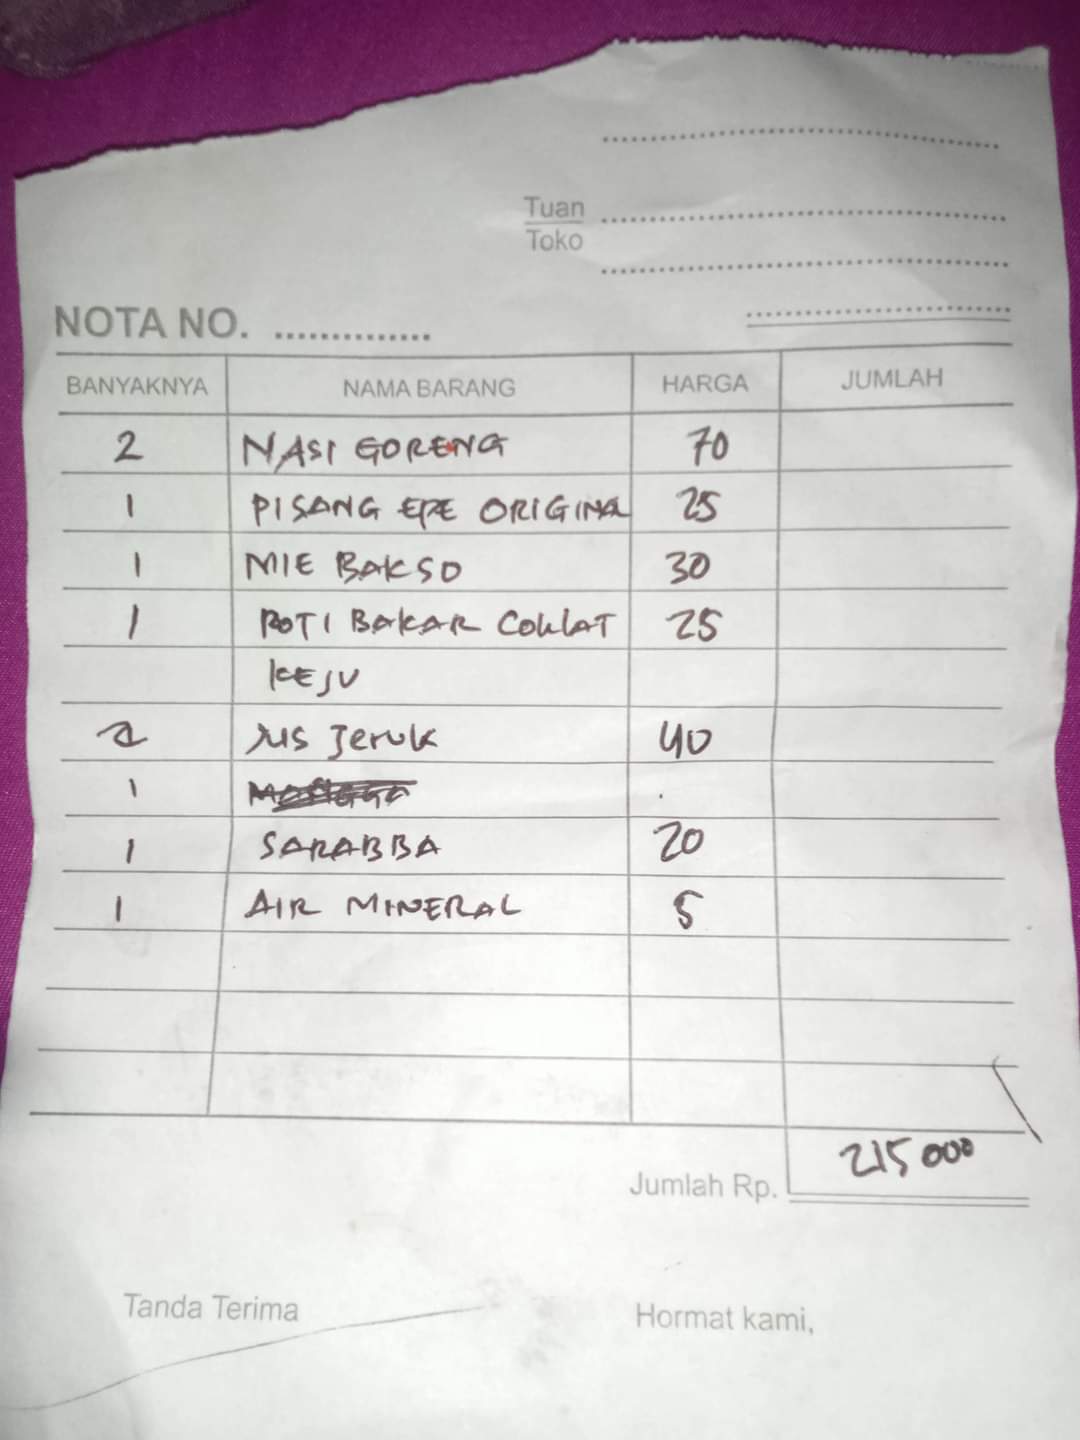 Tuan
Toko
NOTA NO. ..............
BANYAKNYA NAMA BARANG HARGA JUMLAH
2 NASI GORENG 70
1 PISANG EPE ORIGINAL 25
1 MIE BAKSO 30
1 ROTI BAKAR COKLAT 25
KEJU
2 Jus Jeruk 40
1
1 SARABBA 20
1 AIR MINERAL 5
Jumlah Rp. 215000
Tanda Terima Hormat kami,